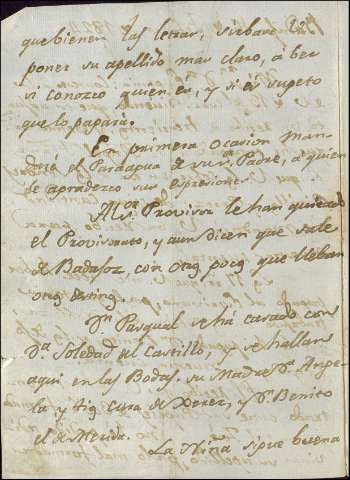 que bienen las letras, sirbase V.
poner su apellido mas claro, a ber
si conozco quien es, y si es supeto
que lo pagará.
En primera ocasion man-
daré el Paraagua de su Padre, a quien
le agradezco sus expresiones
Al Provisor le han quitado
el Provisorato, y aun dicen que sale
de Badajoz, con otros pocos que lleban
otro
Dn Pasqual se há casado con
Da Soledad del Castillo, y se hallan
aqui en las Bodas su Madre Da Ange-
la y tio Cura de Xerez, y Dn Benito
el de Merida.
La Niña sigue buena